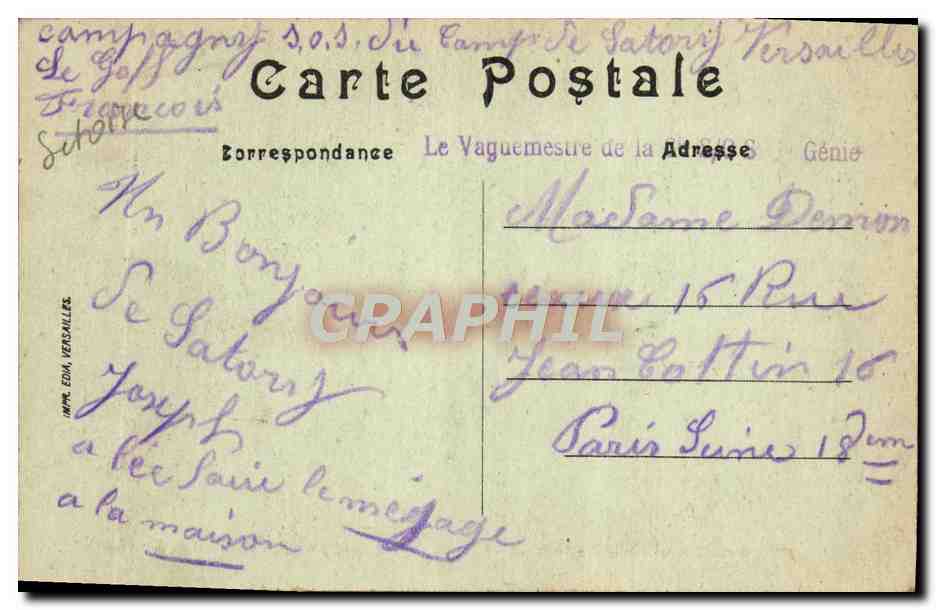 campagny S.O.S. du Camp de Satory Versailles
Le Goff
François
Carte Postale
Correspondance
Le Vaguemestre de la
Adresse
Génie
Un Bonjour
de Satory
Joseph
a lée faire le mégage
a la maison
Madame Demon
16 Rue
Jean Cottin 16
Paris Seine 18 em
IMPR. EDIA, VERSAILLES.
CPARPHIL